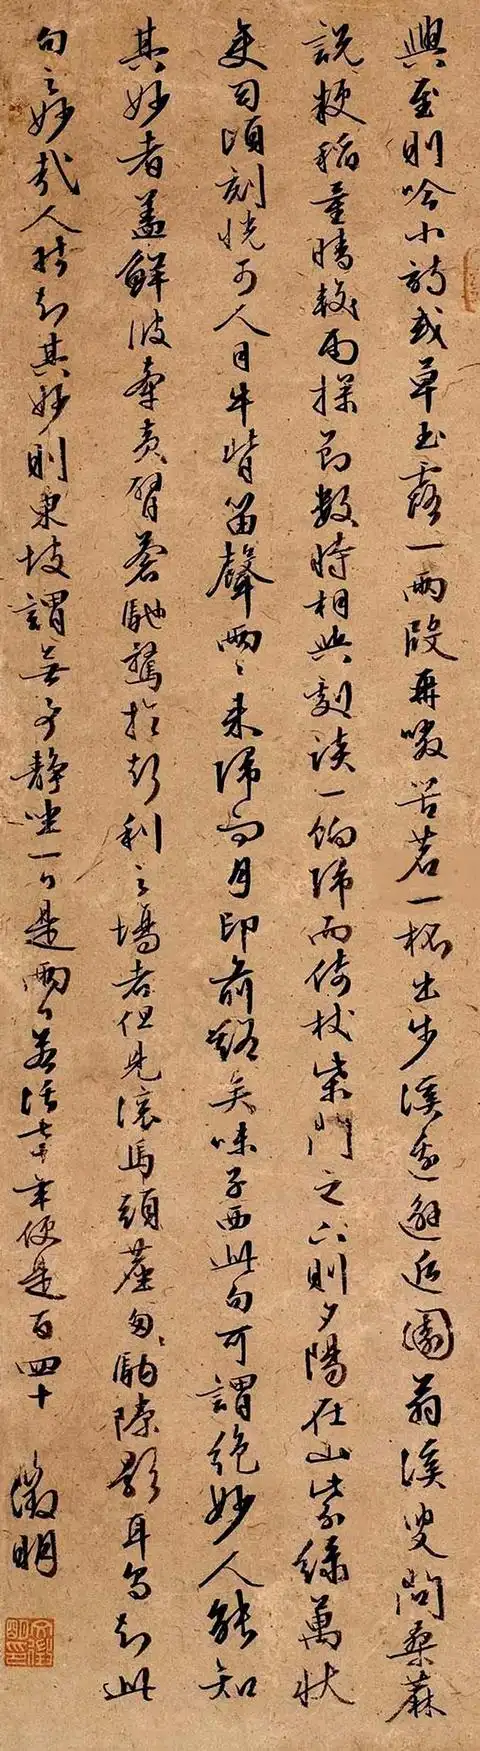 興至則吟小詩或草玉露一兩段再啜苦茗一杯出步溪邊邂逅園翁溪叟問桑蔴
說粳稻量晴較雨探節數時相與劇談一餉歸而倚杖柴門之下則夕陽在山紫綠萬狀
變幻頃刻恍可人目牛背笛聲兩〻來歸而月印前谿矣味子西此句可謂絶妙人能知
其妙者盖鮮彼牽黃臂蒼馳騖於利之場者但見滾馬頭塵匆〻駒隙影耳烏知此
句之妙哉人能知其妙則東坡謂無事靜坐一日是兩日若活七十年便是百四十 徵明
文徵明印